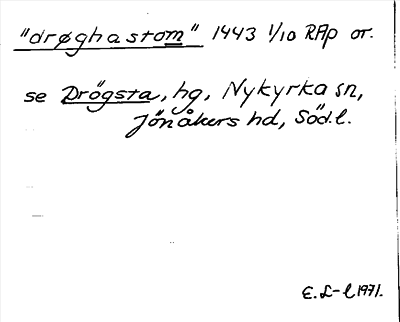 "drøghastom" 1443 1/10 RAp or.
se Drögsta, hg, Nykyrka sn,
Jönåkers hd, Söd.l.
E.L-l 1971.